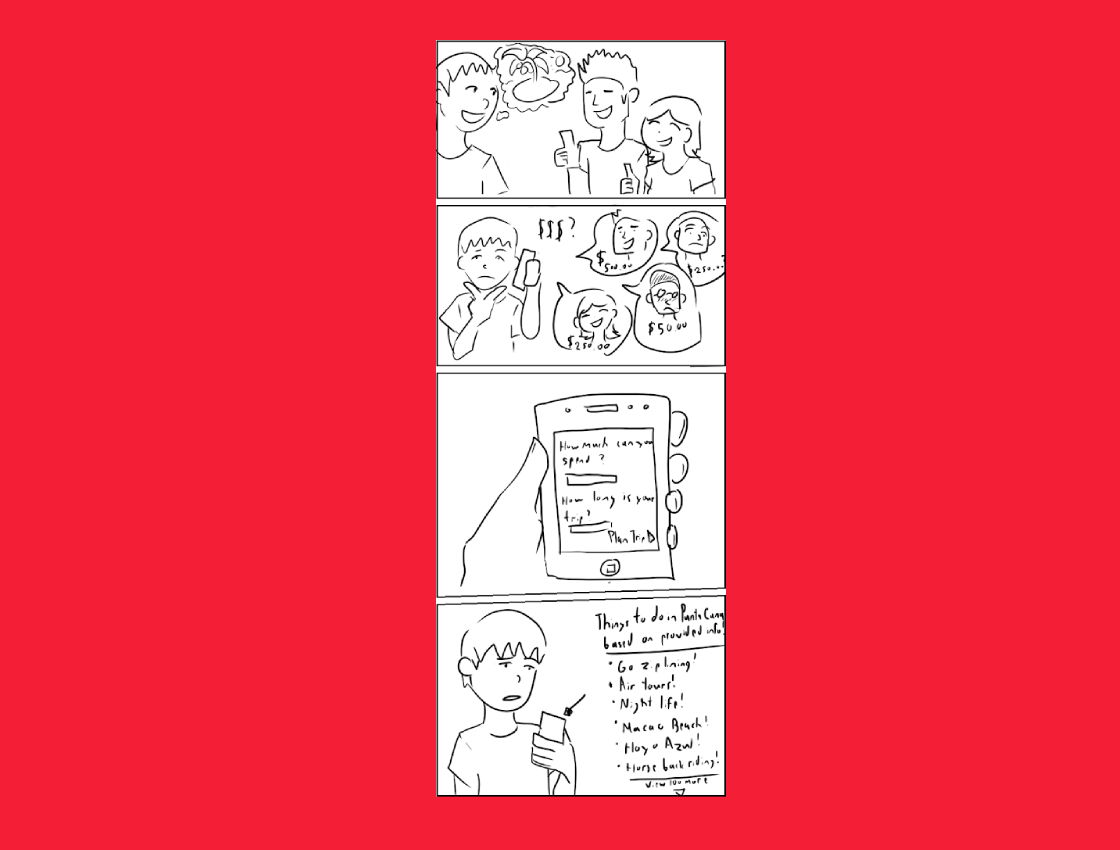 $$$?
$500.00
$250.00
$250.00
$50.00
How much can you
spend?
How long is your
trip?
Plan Trip
Things to do in Punta Cana
based on provided info!
• Go ziplining!
• Air tours!
• Night life!
• Macao Beach!
• Hoyo Azul!
• Horse back riding!
View 100 more